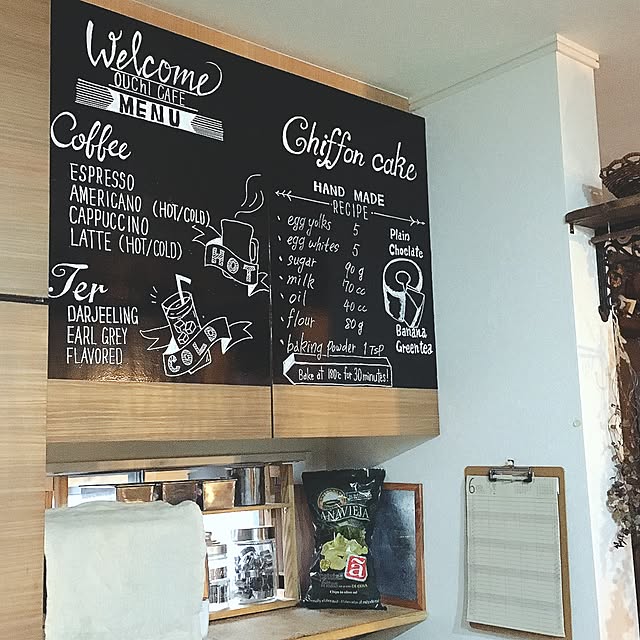 Welcome
OUCH! CAFE
MENU
Coffee
ESPRESSO
AMERICANO (HOT/COLD)
CAPPUCCINO
LATTE (HOT/COLD)
HOT
Ter
DARJEELING
EARL GREY
FLAVORED
COLD
Chiffon cake
HAND MADE
RECIPE
egg yolks 5
egg whites 5
sugar 90g
milk 170cc
oil 40cc
flour 80g
baking powder 1 Tsp
Bake at 180℃ for 30 minutes!
Plain
Choclate
Banana
Green tea
AÑAVIEJA
ã
6